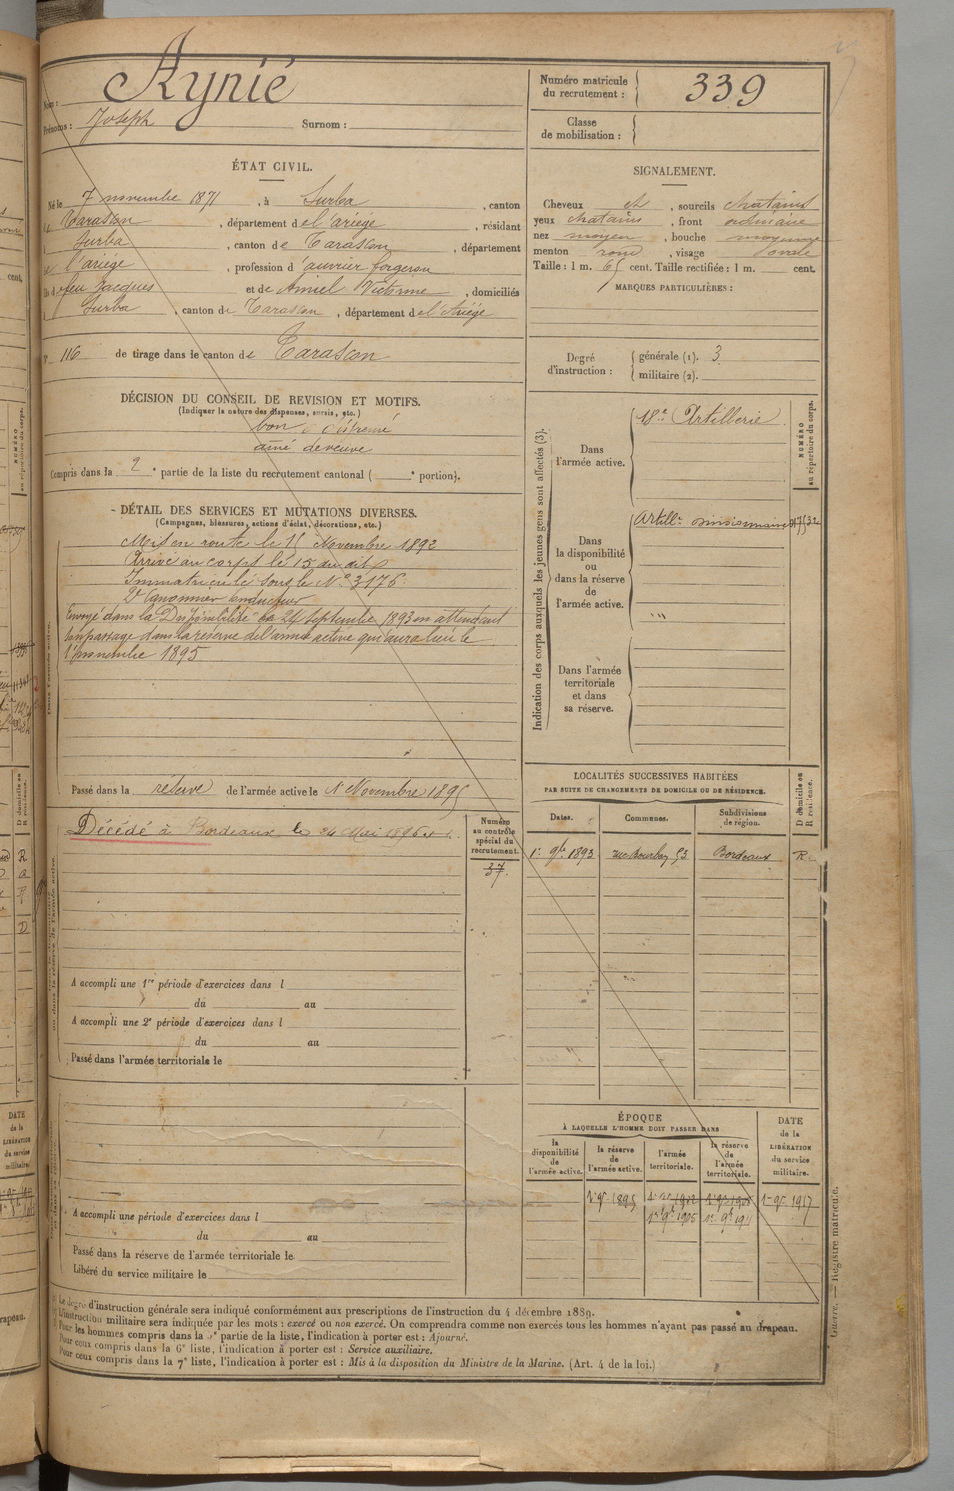 Nom : Aynié
Prénoms : Joseph Surnom :
Numéro matricule du recrutement : 339
Classe de mobilisation :
ÉTAT CIVIL.
Né le 7 novembre 1871, à Surba, canton
de Tarascon, département de l'ariège, résidant
à Surba, canton de Tarascon, département
de l'ariège, profession d'ouvrier forgeron
fils de feu Jacques et de Amiel Victorine, domiciliés
à Surba, canton de Tarascon, département de l'Ariège
N° 116 de tirage dans le canton de Tarascon
SIGNALEMENT.
Cheveux ch, sourcils chatains
yeux chatains, front ordinaire
nez moyen, bouche moyenne
menton rond, visage ovale
Taille : 1 m. 65 cent. Taille rectifiée : 1 m. cent.
MARQUES PARTICULIÈRES :
Degré d'instruction : générale (1). 3
militaire (2).
DÉCISION DU CONSEIL DE REVISION ET MOTIFS.
(Indiquer la nature des dispenses, sursis, etc.)
bon
ainé de veuve
Compris dans la 2e partie de la liste du recrutement cantonal ( e portion).
DÉTAIL DES SERVICES ET MUTATIONS DIVERSES.
(Campagnes, blessures, actions d'éclat, décorations, etc.)
Mis en route le 15 Novembre 1892
Arrivé au corps le 15 du dit
Immatriculé sous le N° 3176.
2e Canonnier conducteur
Envoyé dans la Disponibilité le 24 Septembre 1893 en attendant
son passage dans la réserve de l'armée active qui aura lieu le
1er novembre 1895
Passé dans la réserve de l'armée active le 1er Novembre 1895
Indication des corps auxquels les jeunes gens sont affectés (3).
Dans l'armée active.
18e Artillerie
NUMÉRO au répertoire du corps.
Dans la disponibilité ou dans la réserve de l'armée active.
Artillie divisionnaire
Dans l'armée territoriale et dans sa réserve.
Décédé à Bordeaux, le 24 Mai 1896
Numéro au contrôle spécial du recrutement.
37
A accompli une 1re période d'exercices dans l
du au
A accompli une 2e période d'exercices dans l
du au
Passé dans l'armée territoriale le
A accompli une période d'exercices dans l
du au
Passé dans la réserve de l'armée territoriale le
Libéré du service militaire le
LOCALITÉS SUCCESSIVES HABITÉES
PAR SUITE DE CHANGEMENTS DE DOMICILE OU DE RÉSIDENCE.
Dates. Communes. Subdivisions de région. D domicile ou R résidence.
1er 9bre 1893 53 Bordeaux R
ÉPOQUE
À LAQUELLE L'HOMME DOIT PASSER DANS
la disponibilité de l'armée active. la réserve de l'armée active. l'armée territoriale. la réserve de l'armée territoriale. DATE de la LIBÉRATION du service militaire.
1er 9bre 1895 1er 9bre 1917
1er 9bre 1905 1er 9bre 1911
(1) Le degré d'instruction générale sera indiqué conformément aux prescriptions de l'instruction du 4 décembre 1889.
(2) L'instruction militaire sera indiquée par les mots : exercé ou non exercé. On comprendra comme non exercés tous les hommes n'ayant pas passé au drapeau.
(3) Pour les hommes compris dans la 5e partie de la liste, l'indication à porter est : Ajourné.
Pour ceux compris dans la 6e liste, l'indication à porter est : Service auxiliaire.
Pour ceux compris dans la 7e liste, l'indication à porter est : Mis à la disposition du Ministre de la Marine. (Art. 4 de la loi.)
Guerre. — Registre matricule.